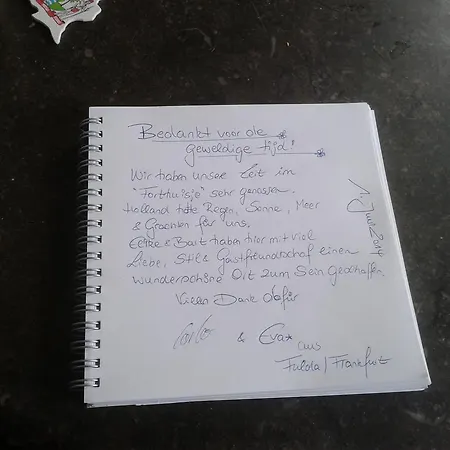 Bedankt voor die
geweldige tijd!
Wir haben unsere Zeit im
"Forthuisje" sehr genossen.
Holland hatte Regen, Sonne, Meer
& Grachten für uns.
& Bart haben hier mit viel
Liebe, Stil & Gastfreundschaf einen
wunderschöne Ort zum Sein geschaffen.
Vielen Dank dafür
& Eva* aus
Fulda / Frankfurt
1. Juni